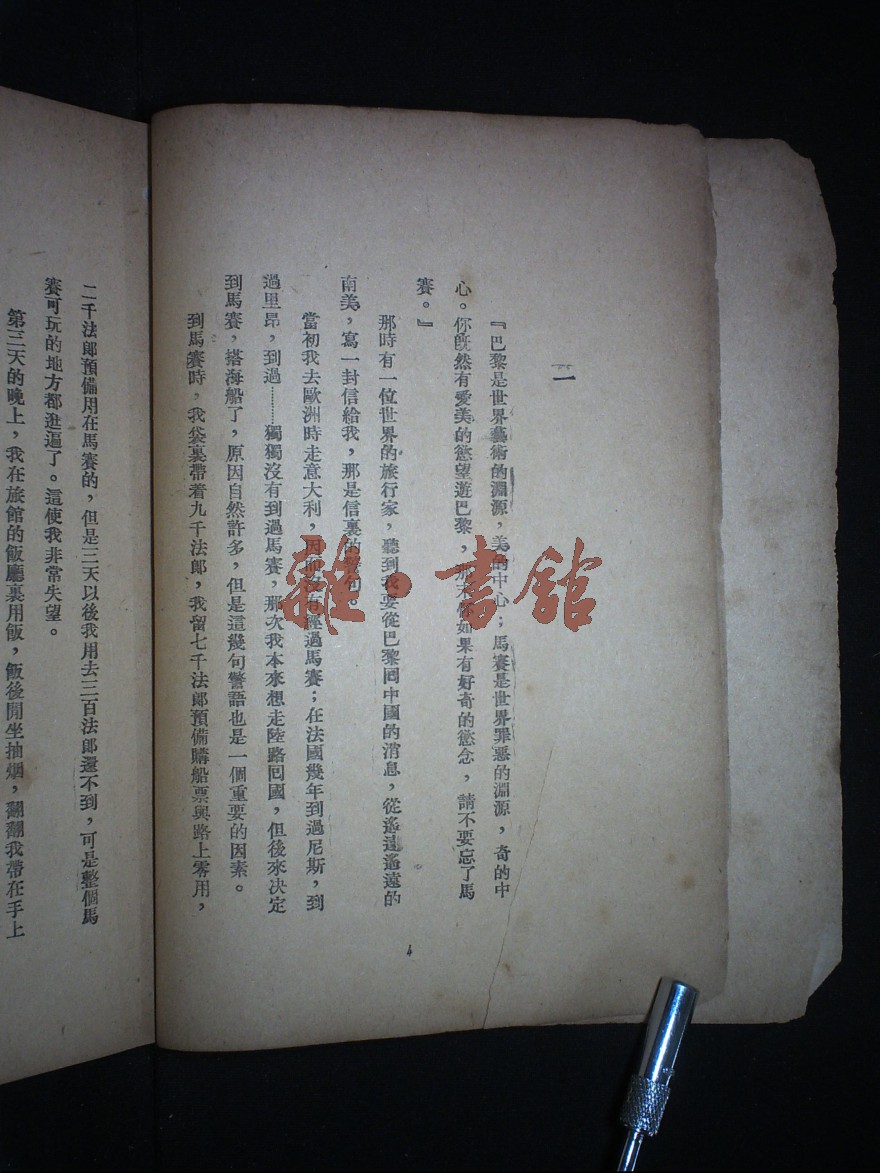 一
『巴黎是世界藝術的淵源,美的中心;馬賽是世界罪惡的淵源,奇的中
心。你旣然有愛美的慾望遊巴黎,那末你如果有好奇的慾念,請不要忘了馬
賽。』
那時有一位世界的旅行家,聽到我要從巴黎囘中國的消息,從遙遠遙遠的
南美,寫一封信給我,那是信裏的警句。
當初我去歐洲時走意大利,因而沒有經過馬賽;在法國幾年到過尼斯,到
過里昂,到過……獨獨沒有到過馬賽,那次我本來想走陸路囘國,但後來决定
到馬賽,搭海船了,原因自然許多,但是這幾句警語也是一個重要的因素。
到馬賽時,我袋裏帶着九千法郎,我留七千法郎預備購船票與路上零用,
4
二千法郎預備用在馬賽的,但是三天以後我用去三百法郎還不到,可是整個馬
賽可玩的地方都逛遍了。這使我非常失望。
第三天的晚上,我在旅館的飯廳裏用飯,飯後閒坐抽烟,翻翻我帶在手上
雜·書館